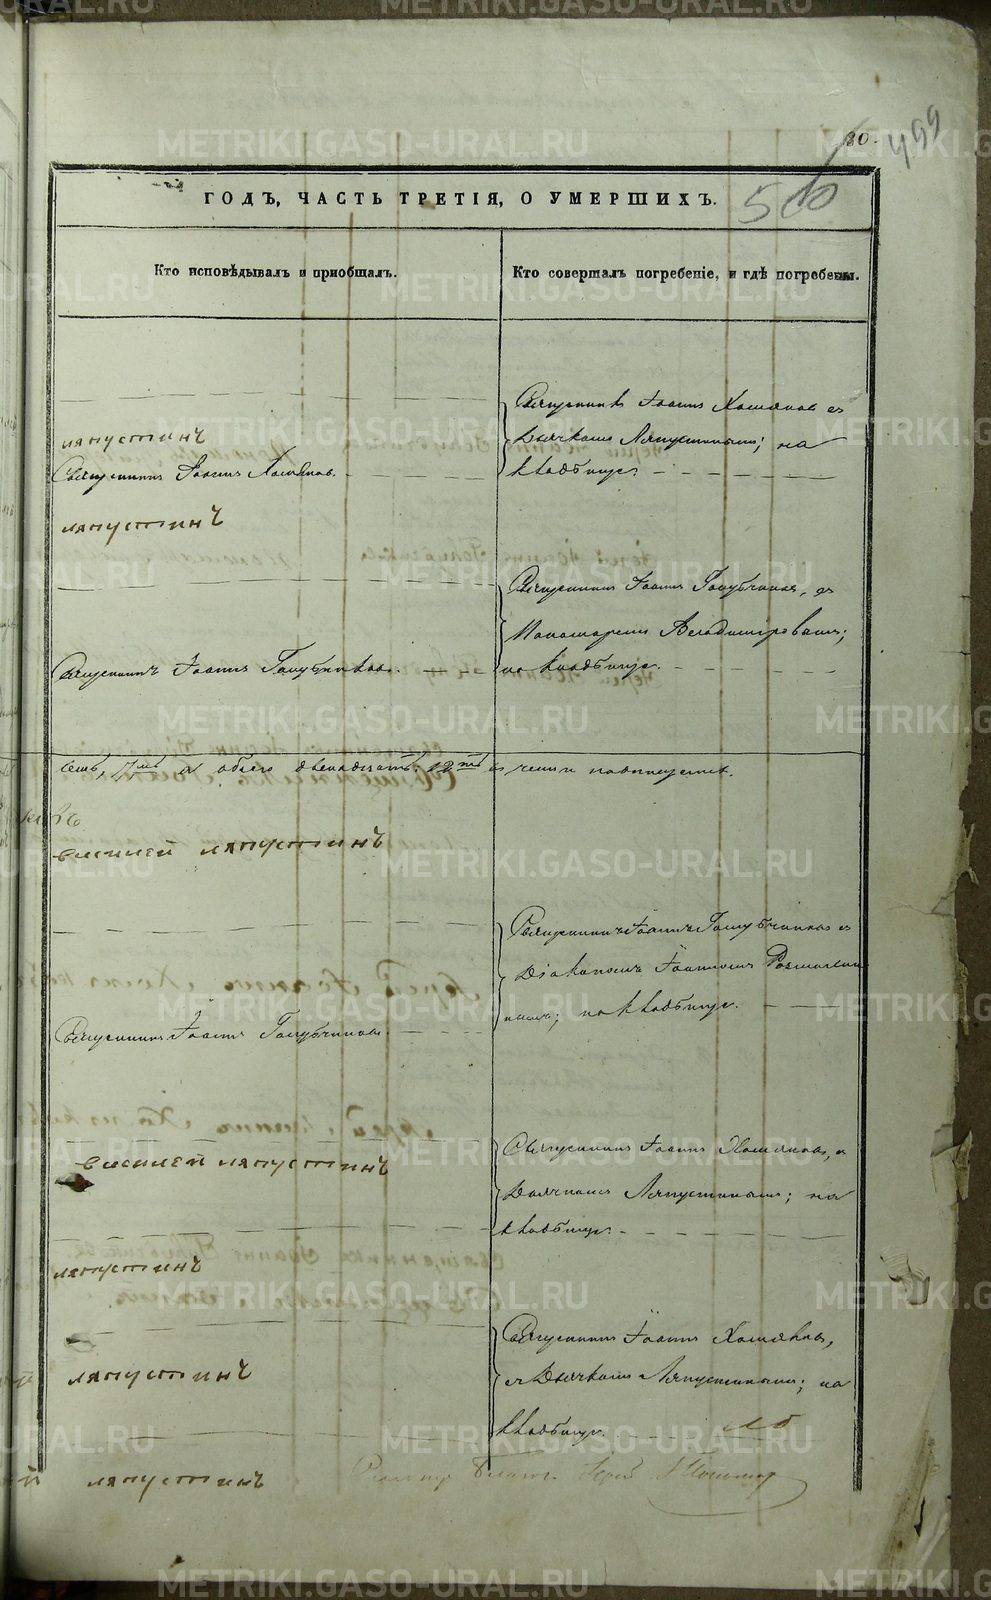 80.
499
500
ГОДЪ, ЧАСТЬ ТРЕТІЯ, О УМЕРШИХЪ.
Кто исповѣдывалъ и пріобщалъ.
Кто совершалъ погребеніе, и гдѣ погребены.
Священникъ Іоаннъ Хомяковъ съ
Дьячкомъ Ляпустинымъ; на
кладбищѣ.
ляпустинъ
Священникъ Іоаннъ Хомяковъ.
ляпустинъ
Священникъ Іоаннъ Голубчиковъ, съ
Пономаремъ
на кладбищѣ.
Священникъ Іоаннъ Голубчиковъ.
семь, 7мь а обоего двенадцать, 12ть
василей ляпустинъ
Священникъ Іоаннъ Голубчиковъ съ
Діакономъ Іоанномъ
на кладбищѣ.
Священникъ Іоаннъ Голубчиковъ.
василей ляпустинъ
Священникъ Іоаннъ Хомяковъ, съ
Дьячкомъ Ляпустинымъ; на
кладбищѣ.
ляпустинъ
Священникъ Іоаннъ Хомяковъ,
съ Дьячкомъ Ляпустинымъ; на
кладбищѣ.
ляпустинъ
ляпустинъ
METRIKI.GASO-URAL.RU